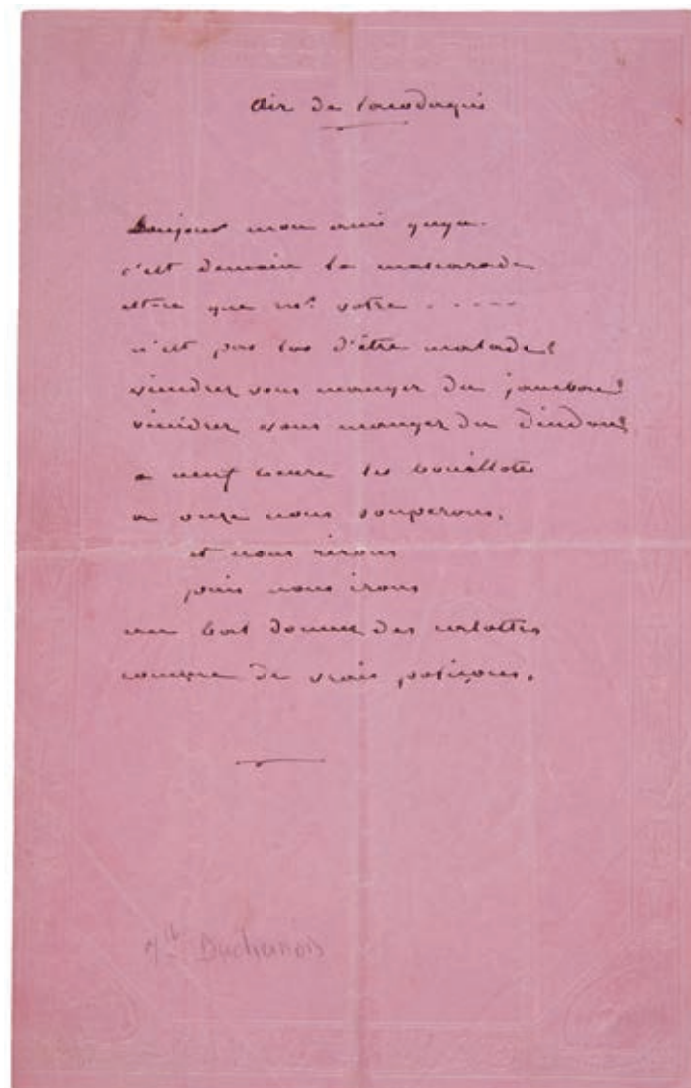 Air de
Bonjour mon ami
c'est demain la mascarade
est-ce que votre - - - - -
n'est pas las d'être malade?
viendrez vous manger du jambon?
viendrez vous manger du dindon?
a neuf heure les bouillotes
a onze nous souperons,
et nous rirons
puis nous irons
au bal donner des
comme de vrais poliçons.
Duchesnois